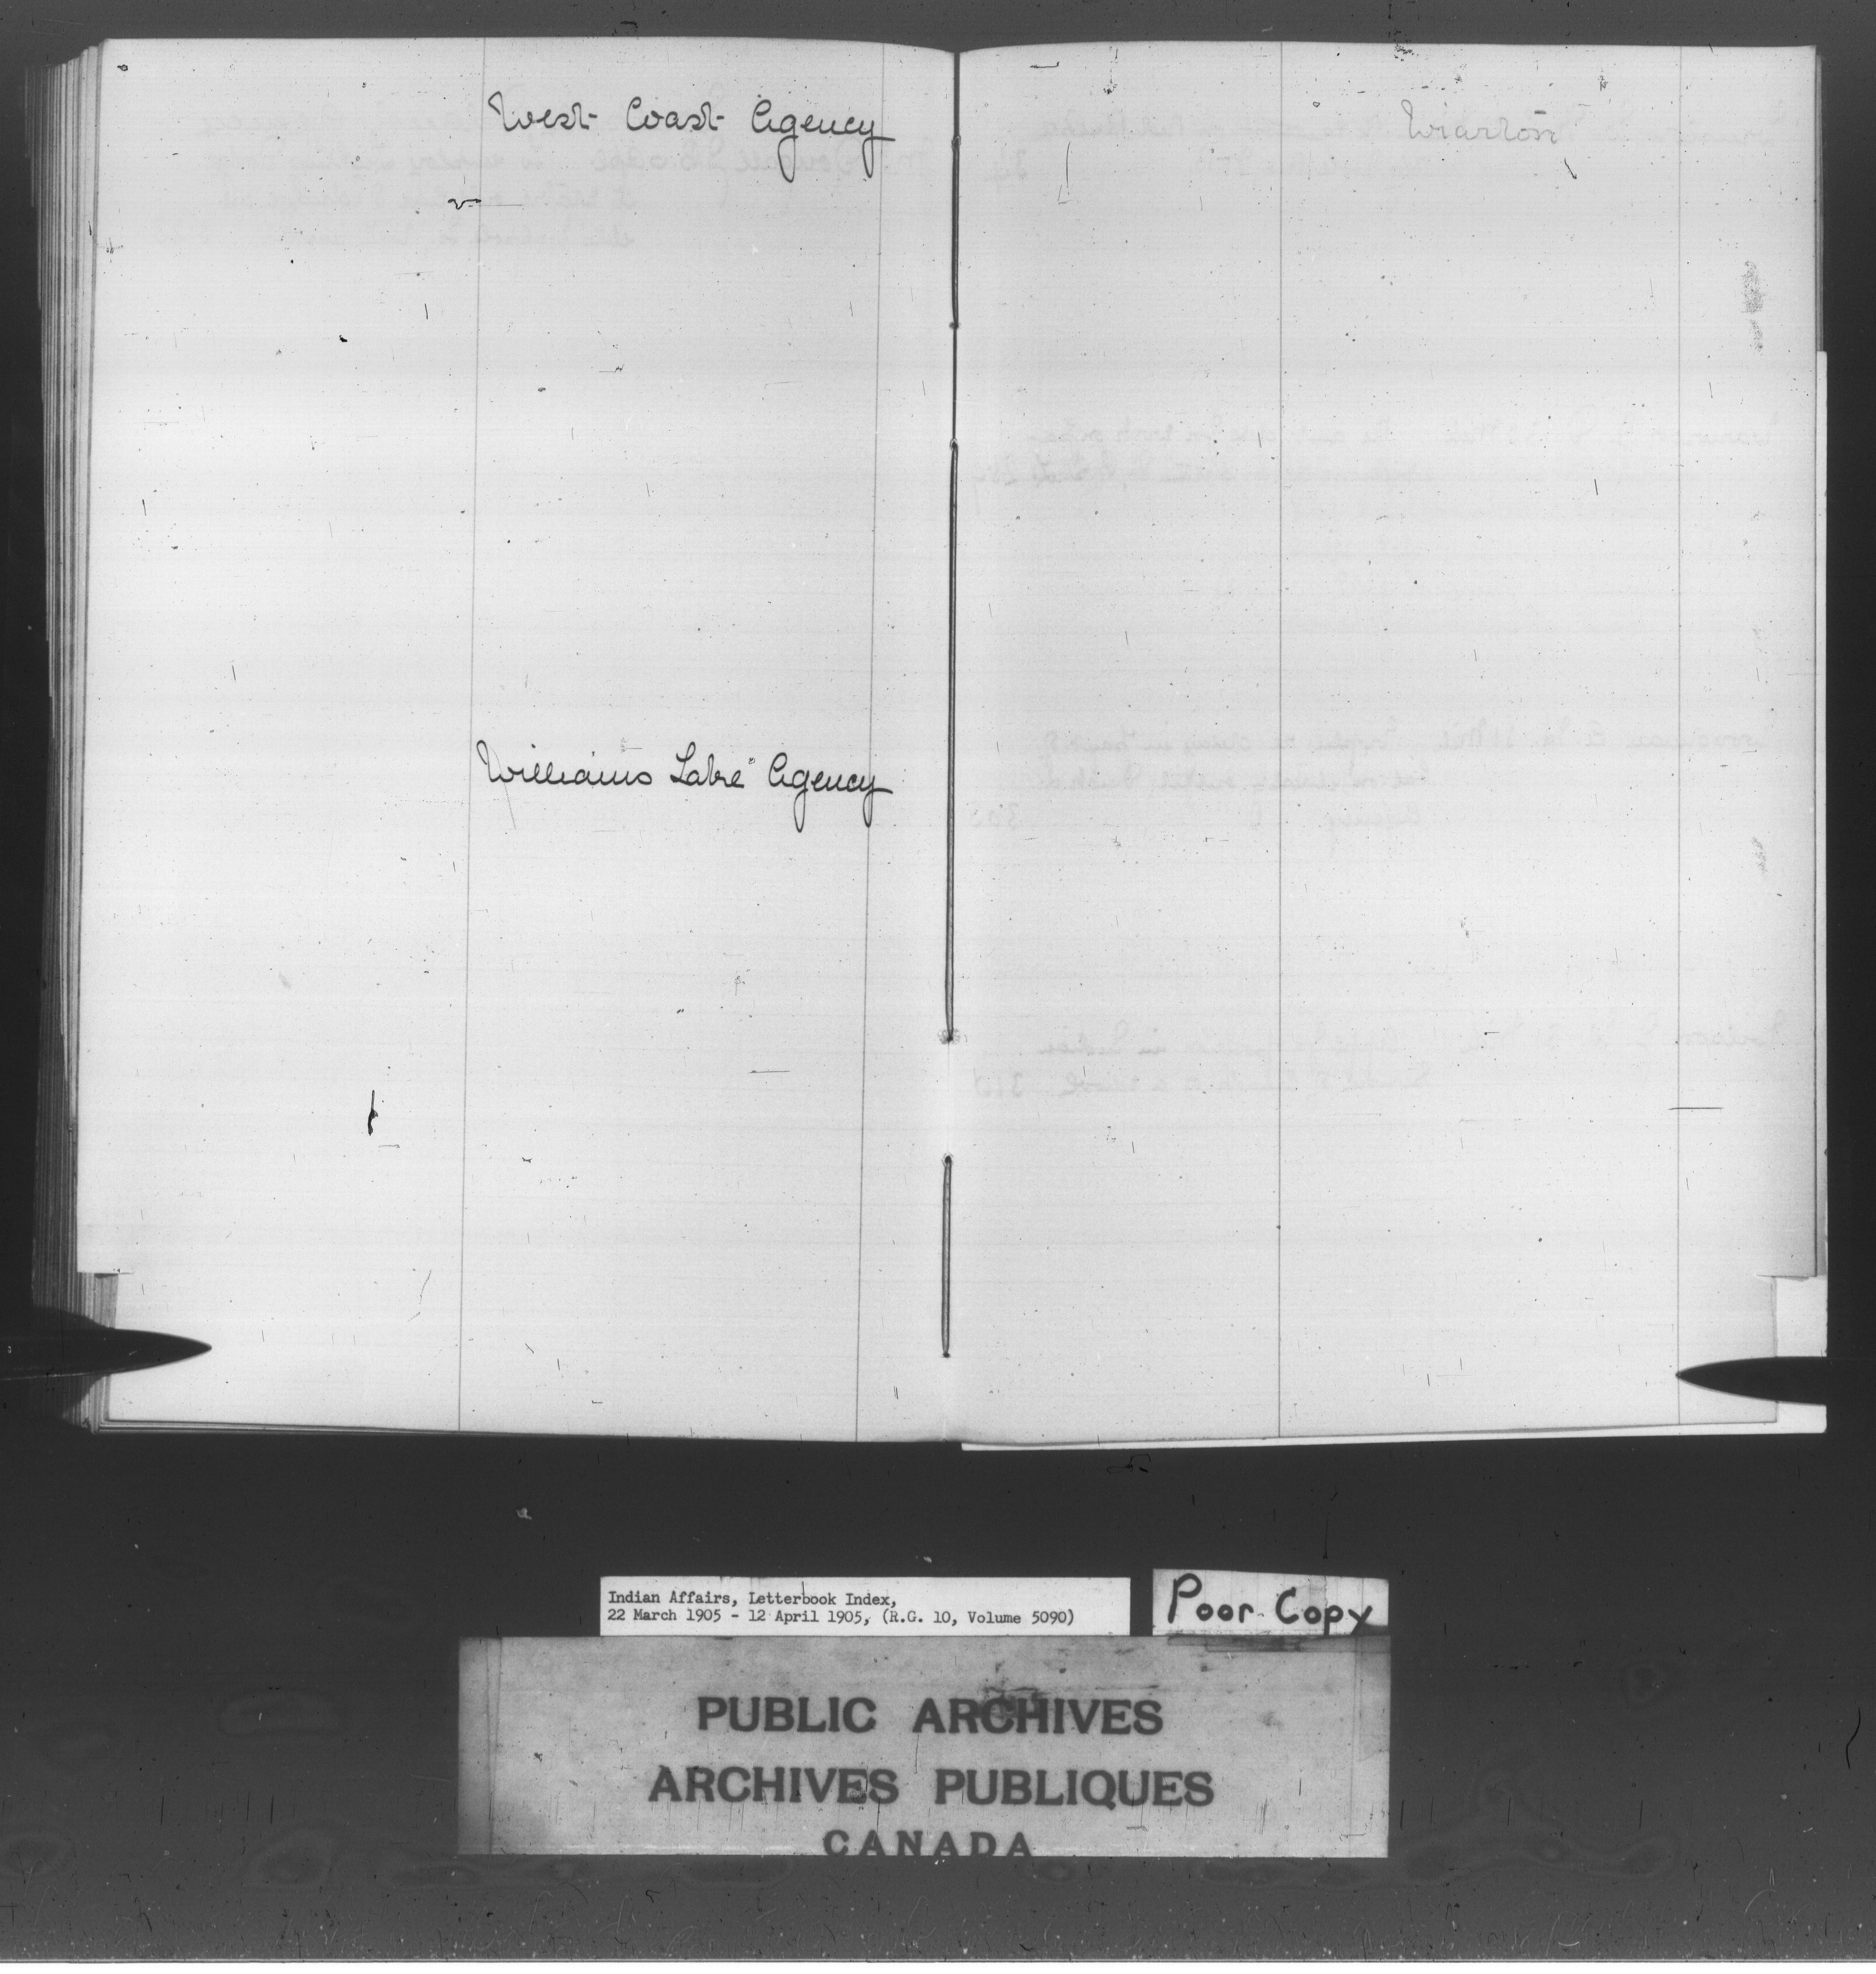 West Coast Agency
Williams Lake Agency
Wiarton
Indian Affairs, Letterbook Index,
22 March 1905 - 12 April 1905, (R.G. 10, Volume 5090)
Poor Copy
PUBLIC ARCHIVES
ARCHIVES PUBLIQUES
CANADA